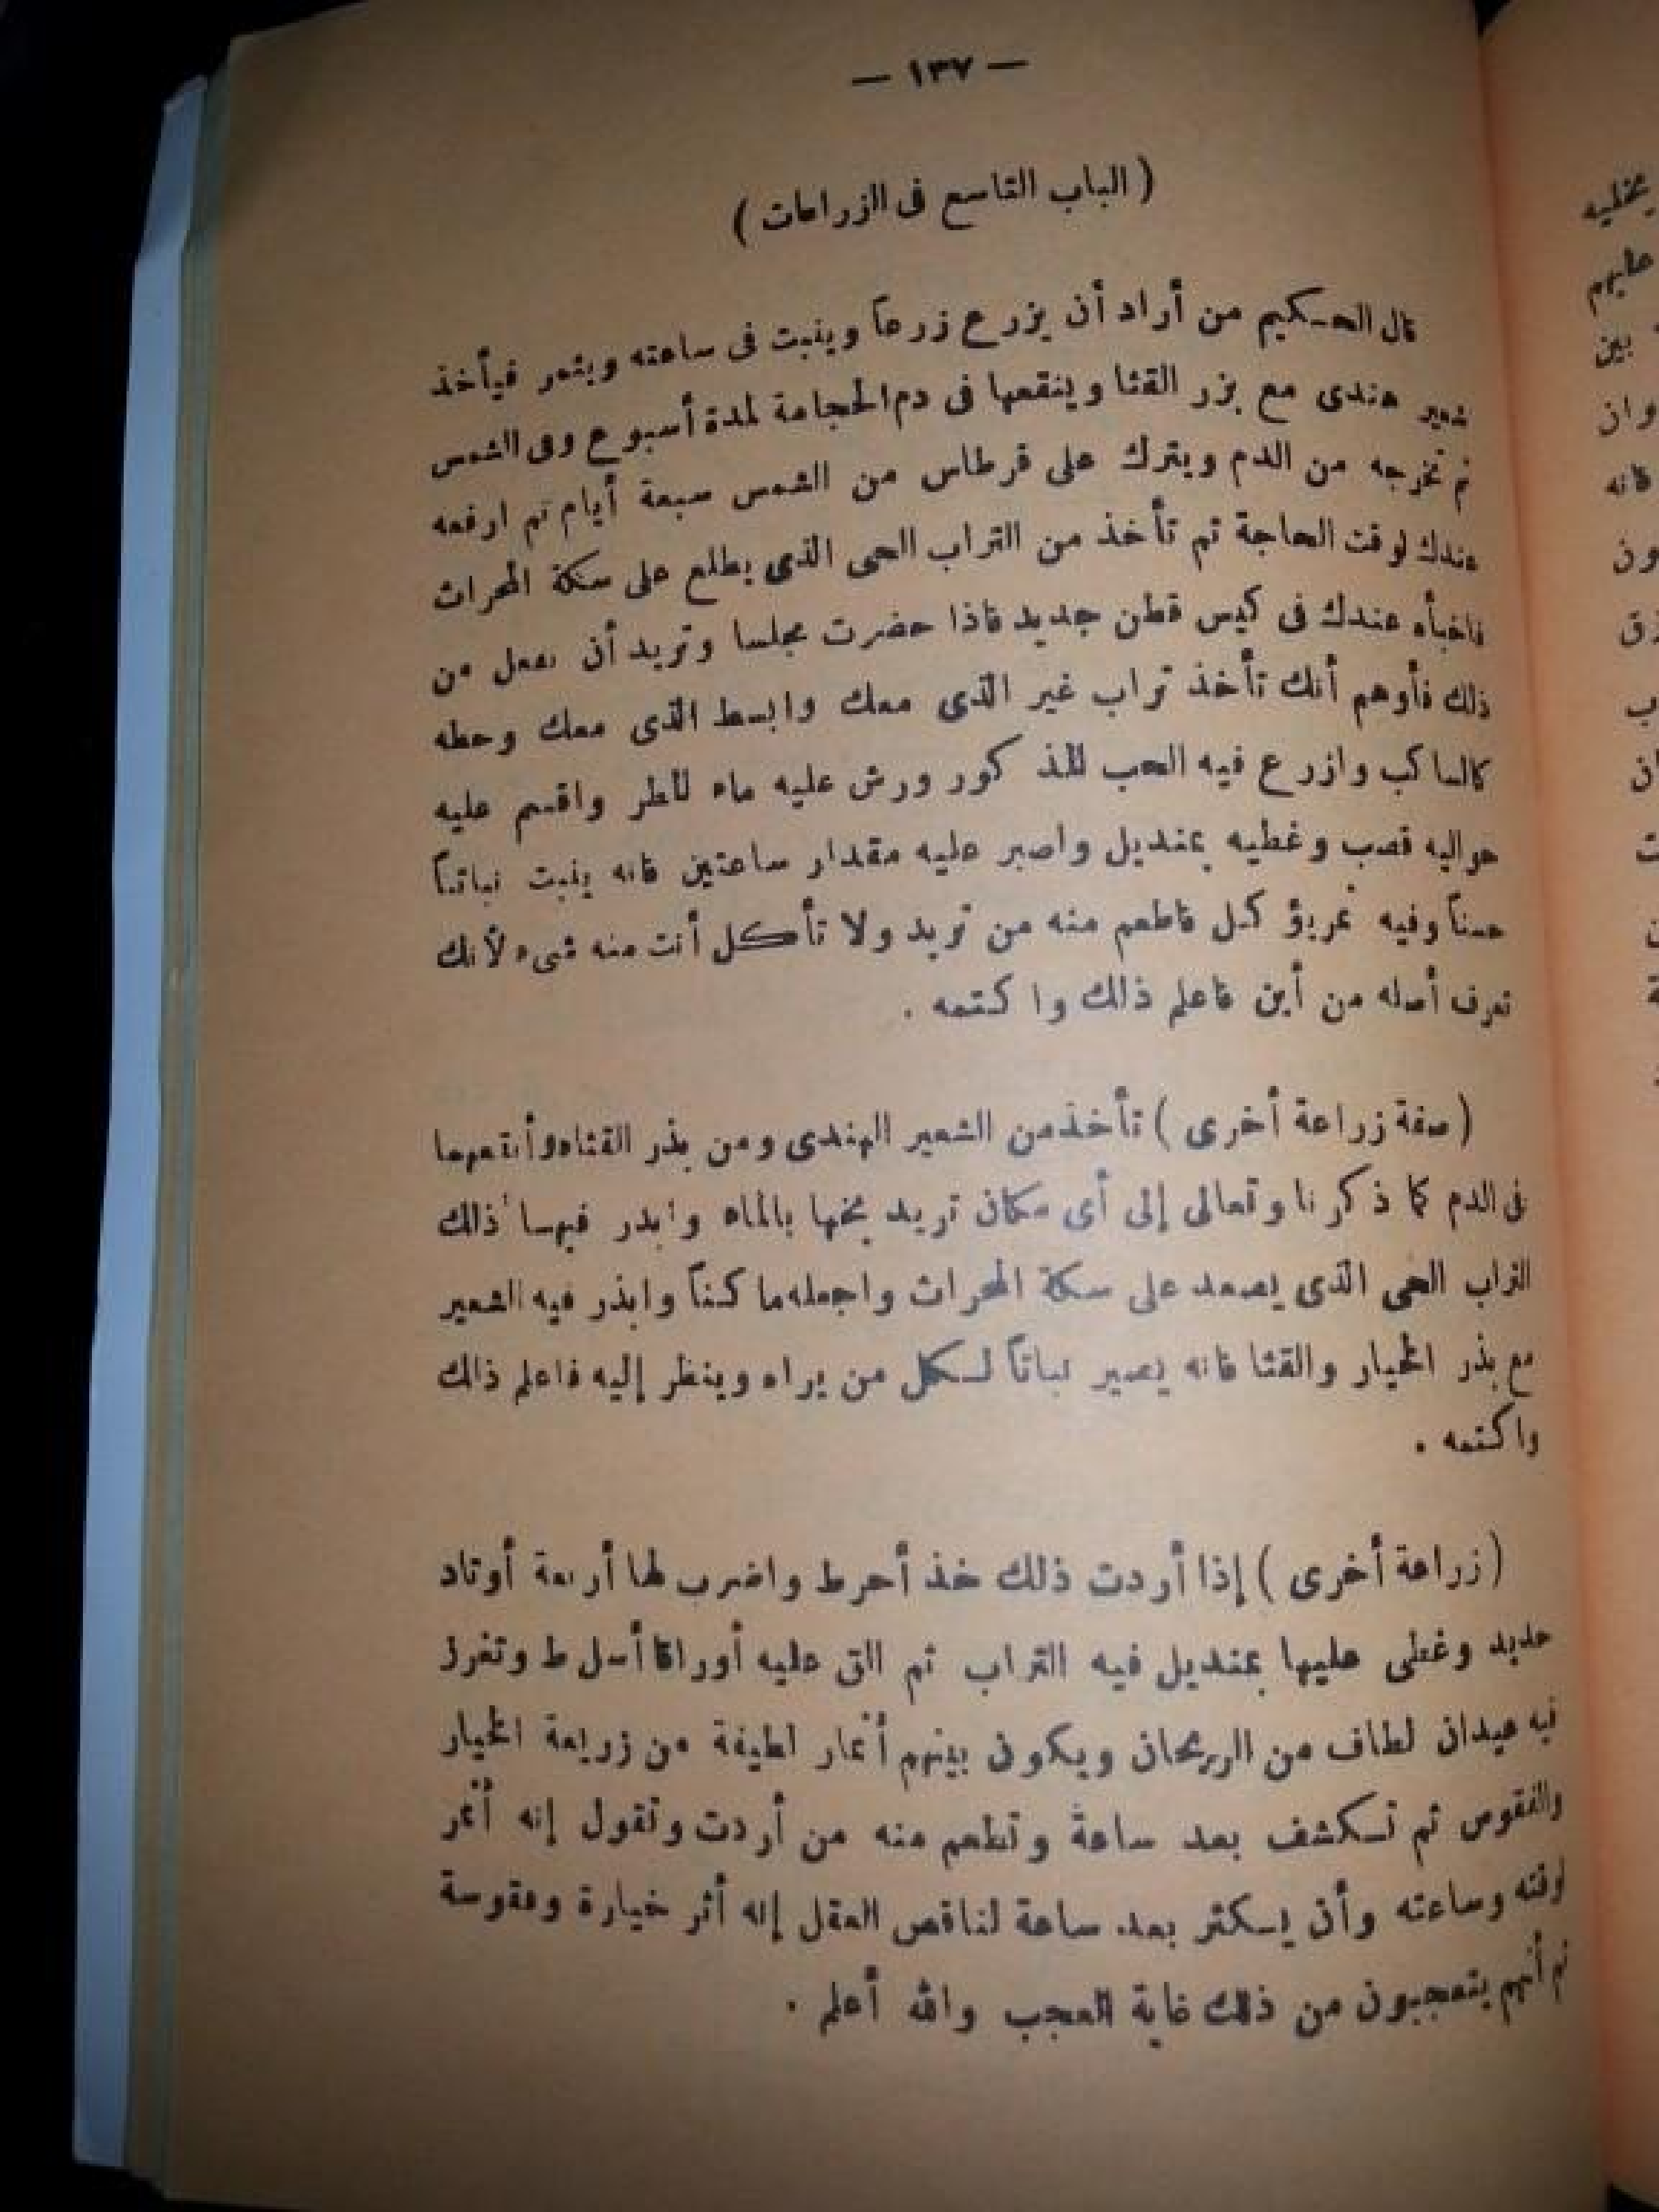 — ١٣٧ —
( الباب التاسع فى الزراعات )
قال الحكيم من أراد أن يزرع زرعاً وينبت فى ساعته ويثمر فيأخذ
شعير هندى مع بزر القثا وينقعها فى دم الحجامة لمدة أسبوع وفى الشمس
ثم تخرجه من الدم ويترك على قرطاس من الشمس سبعة أيام ثم ارفعه
عندك لوقت الحاجة ثم تأخذ من التراب الحى الذى يطلع على سكة المحراث
فاخبأه عندك فى كيس قطن جديد فاذا حضرت مجلسا وتريد أن تفعل من
ذلك فأوهم أنك تأخذ تراب غير الذى معك وابسط الذى معك وحطه
كالساكب وازرع فيه الحب المذكور ورش عليه ماء المطر واقسم عليه
حواليه قصب وغطيه بمنديل واصبر عليه مقدار ساعتين فانه ينبت نباتاً
حسناً وفيه كل فاطعم منه من تريد ولا تأكل أنت منه شىء لأنك
تعرف أصله من أين فاعلم ذلك واكتمه .
( صفة زراعة أخرى ) تأخذ من الشعير الهندى ومن بذر القثاء وأنقعهما
فى الدم كما ذكرنا وتعالى إلى أى مكان تريد بخها بالماء وابدر فيها ذلك
التراب الحى الذى يصعد على سكة المحراث واجعله ما كناً وابذر فيه الشعير
مع بذر الخيار والقثا فانه يصير نباتاً لكل من يراه وينظر إليه فاعلم ذلك
واكتمه .
( زراعة أخرى ) إذا أردت ذلك خذ أحرط واضرب لها أربعة أوتاد
حديد وغطى عليها بمنديل فيه التراب ثم الق عليه أوراقا وتغرز
فيه عيدان لطاف من الريحان ويكون بينهم أثمار لطيفة من زريعة الخيار
والفقوس ثم تكشف بعد ساعة وتطعم منه من أردت وتقول إنه أثمر
لوقته وساعته وأن يكثر بعد ساعة لناقص العقل إنه أثر خيارة وفقوسة
ثم أنهم يتعجبون من ذلك غاية العجب والله أعلم .